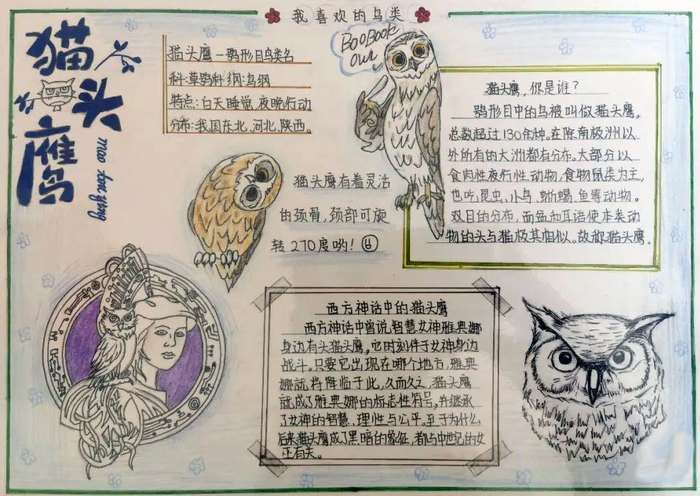 我喜欢的鸟类
猫头鹰
mao tou ying
猫头鹰—鸮形目鸟类名
科:草鸮科 纲:鸟纲
特点:白天睡觉,夜晚行动
分布:我国东北,河北,陕西。
BooBook
owl
猫头鹰有着灵活
的颈骨,颈部可旋
转270度哟!
猫头鹰,你是谁?
鸮形目中的鸟被叫做猫头鹰,
总数超过130余种。在除南极洲以
外所有的大洲都有分布。大部分以
食肉性夜行性动物,食物鼠类为主,
也吃昆虫、小鸟、蜥蜴、鱼等动物。
双目的分布,面盘和耳语使本类动
物的头与猫极其相似。故称猫头鹰。
西方神话中的猫头鹰
西方神话中曾说,智慧女神雅典娜
身边有头猫头鹰,它时刻伴于女神身边
战斗。只要它出现在哪个地方,雅典
娜就将降临于此,久而久之,猫头鹰
就成了雅典娜的标志性符号,并继承
了女神的智慧、理性与公平。至于为什么
后来猫头鹰成了黑暗的象征,都与中世纪的女
巫有关。